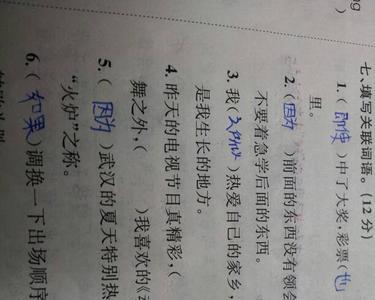 七、填写关联词语。(12分)
1.(即使)中了大奖,彩票(也
里。
2.(因为)前面的东西没有领会
不要着急学后面的东西。
3.我()热爱自己的家乡,
是我生长的地方。
4.昨天的电视节目真精彩,(
舞之外,( )我喜欢的《
5.(因为)武汉的夏天特别热
“火炉”之称。
6.(如果)调换一下出场顺序